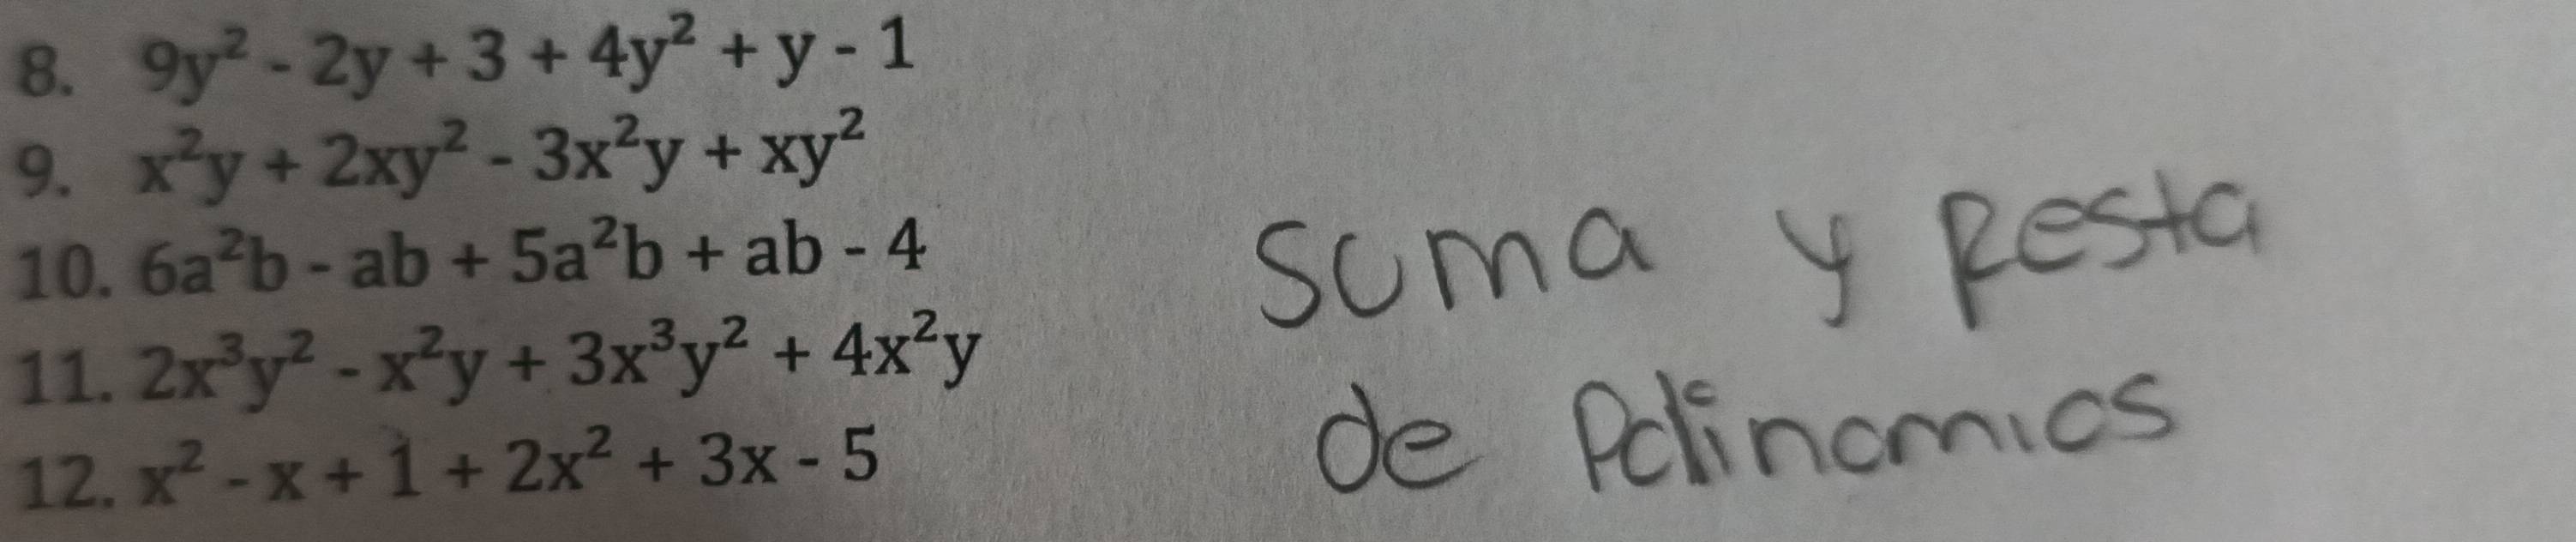 8. 9y² - 2y + 3 + 4y² + y - 1
9. x²y + 2xy² - 3x²y + xy²
10. 6a²b - ab + 5a²b + ab - 4
11. 2x³y² - x²y + 3x³y² + 4x²y
12. x² - x + 1 + 2x² + 3x - 5
Suma y Resta
de Polinomios